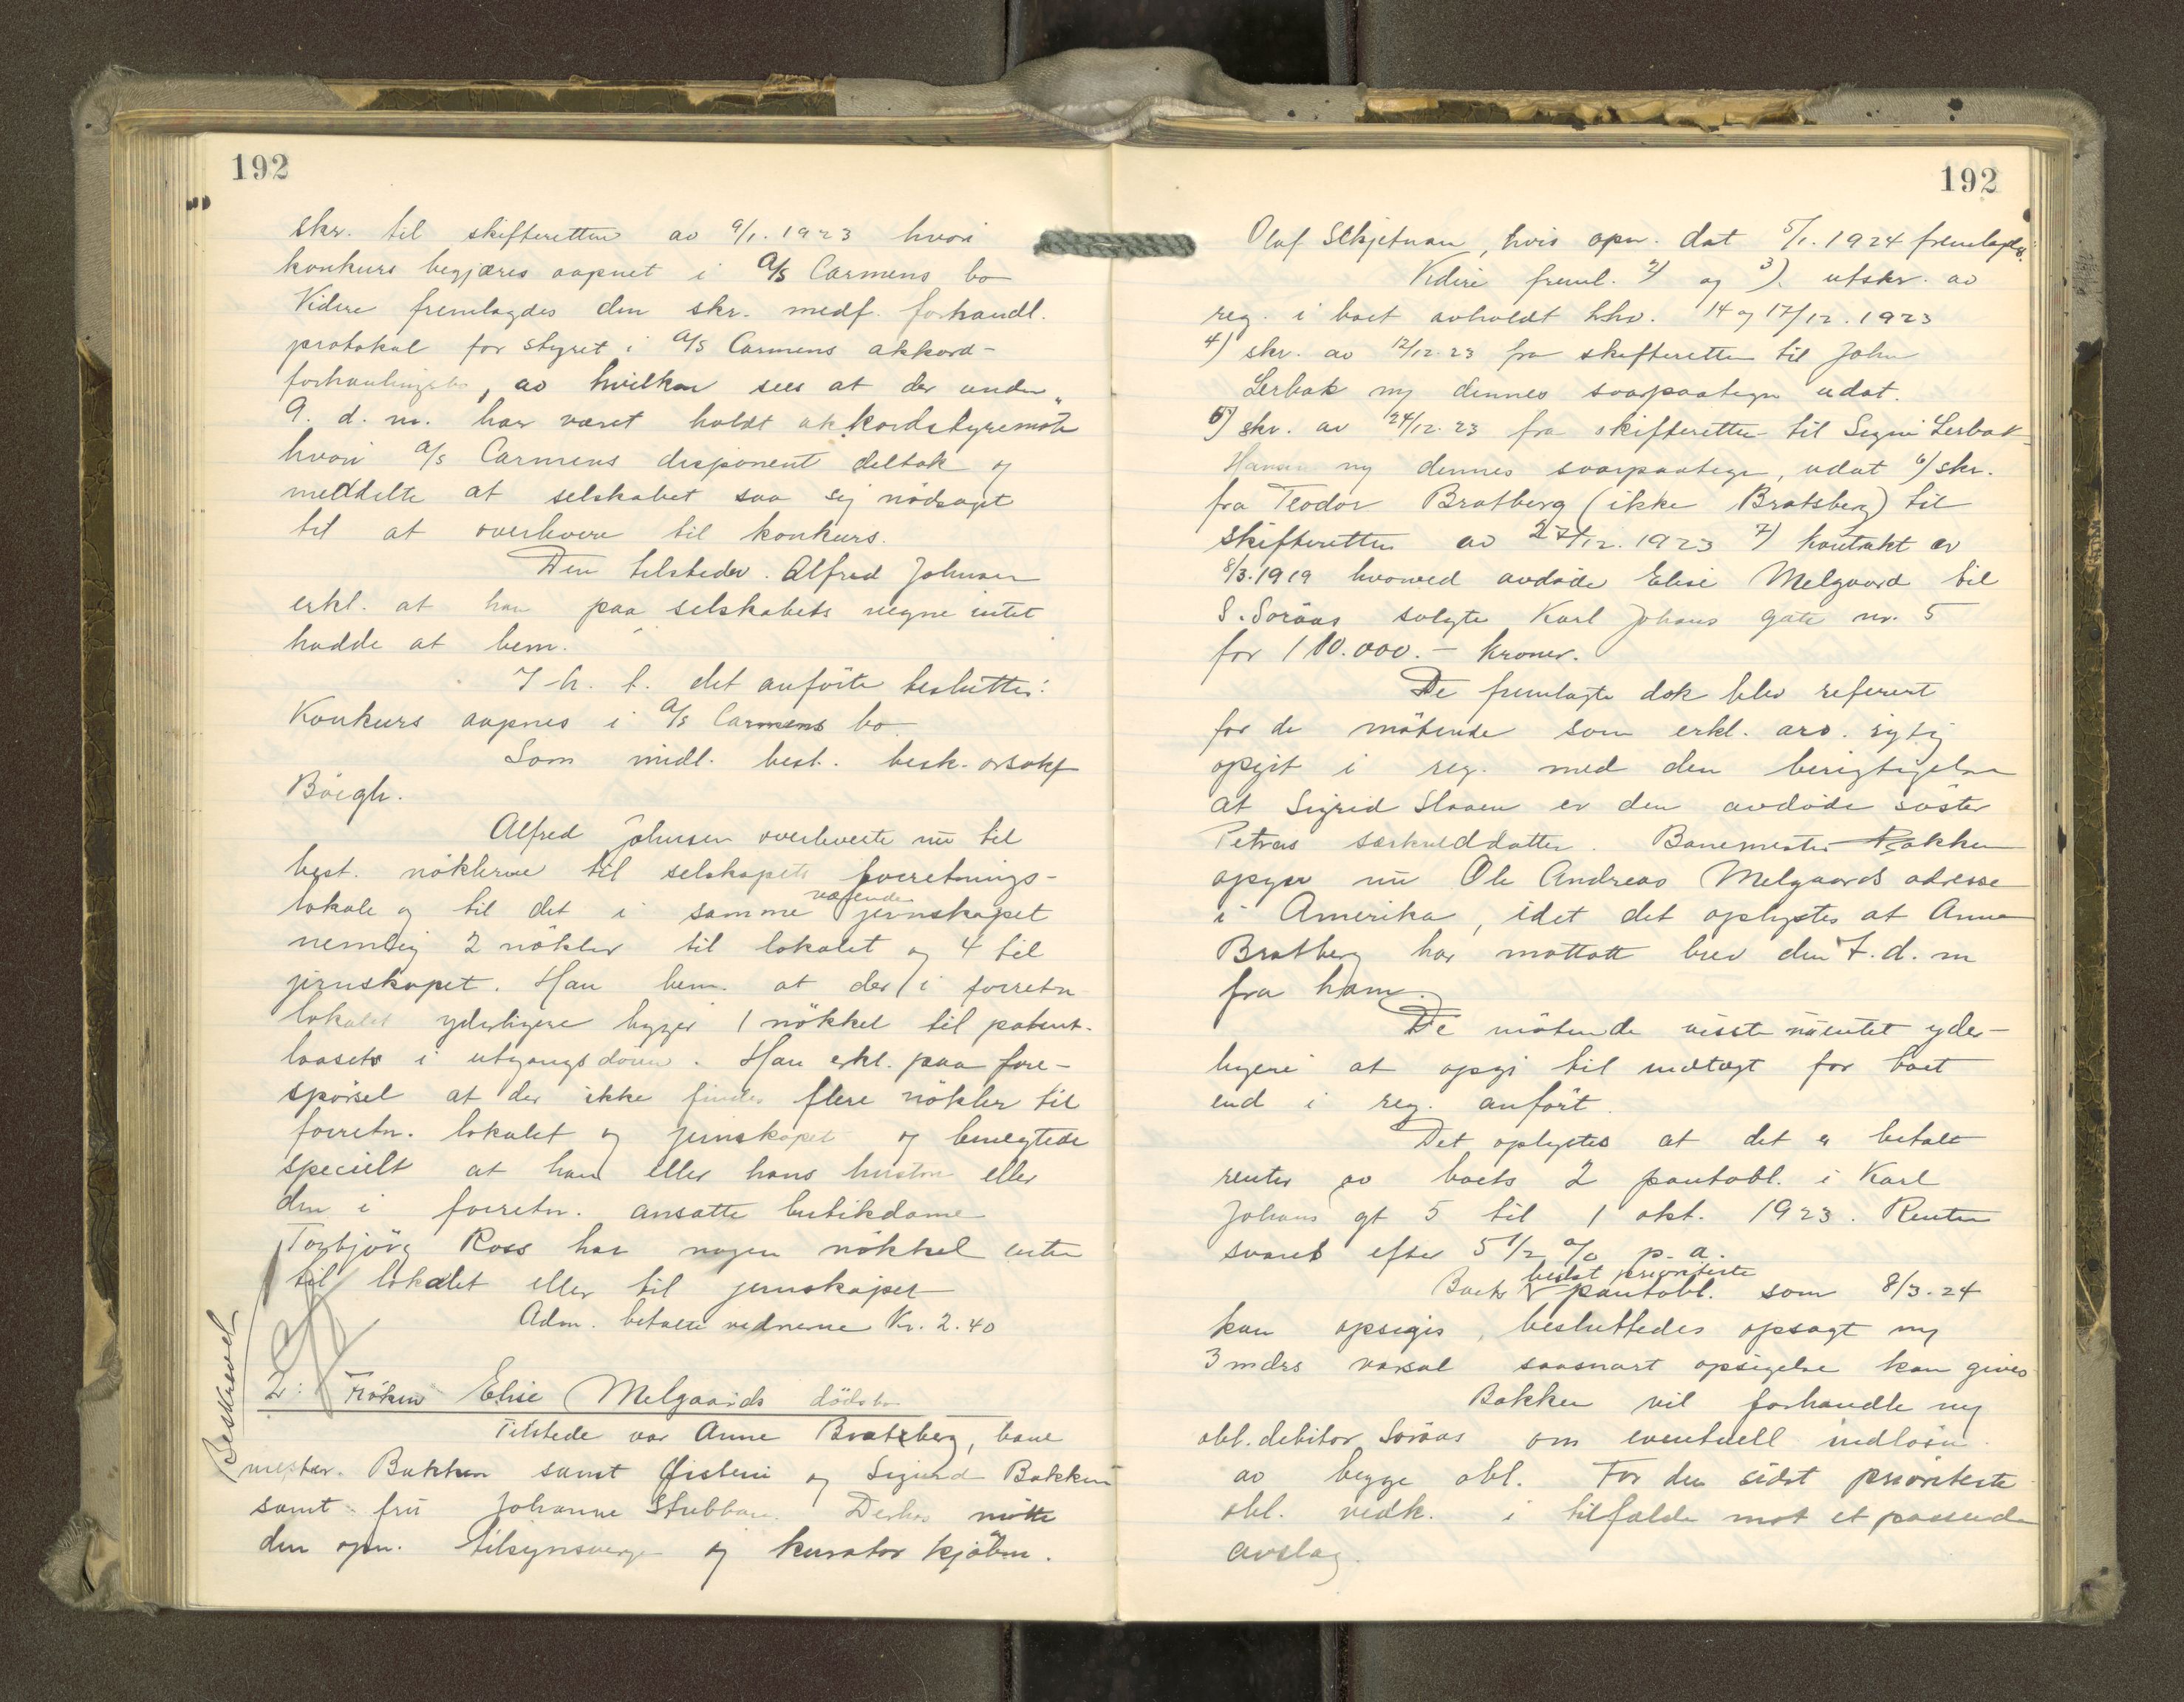 192
skr. til skifteretten av 9/1. 1923 hvori
konkurs begjæres aapnet i A/S Carmens bo
Videre fremlagdes den skr. medf. forhandl.
protokol for styret i A/S Carmens akkord-
forhandlingsbo, av hvilken sees at der under
9. d. m. har været holdt akkordstyremöte
hvori A/S Carmens disponent deltok og
meddelte at selskabet saa sig nödsaget
til at overlevere til konkurs.
Den tilstedev. Alfred Johnsen
erkl. at han paa selskabets vegne intet
hadde at bem.
I h. t. det anförte besluttes:
Konkurs aapnes i A/S Carmens bo
Som midl. best. besk. orsakf
Böigh.
Alfred Johnsen overleverte nu til
best. nöklerne til selskapets forretnings-
lokale og til det i samme værende jernskapet
nemlig 2 nökler til lokalet og 4 til
jernskapet. Han bem. at der i forretn
lokalet yderligere ligger 1 nökkel til patent-
laasets i utgangsdören. Han erkl. paa fore-
spörsel at der ikke findes flere nökler til
forretn. lokalet og jernskapet og benegtede
specielt at han eller hans hustru eller
den i forretn. ansatte butikdame
Torbjörg Ross har nogen nökkel enten
til lokalet eller til jernskapet
Adm. betalte vidnerne Kr. 2.40
Beskrevet
2: Fröken Elise Melgaards dödsbo
Tilstede var Anne Bratsberg, bane
mester Bakken samt Öistein og Sigurd Bakken
samt fru Johanne Stubban. Derhos mötte
den opn. tilsynsverge og kurator kjöbm.
192
Olaf Skjetnan, hvis opn. dat 5/1. 1924 fremlagdes.
Videre freml. 2) og 3). utskr. av
reg. i boet avholdt hhv. 14 og 17/12. 1923
4) skr. av 12/12. 23 fra skifteretten til John
Lerbak mg dennes svarpaategn udat.
5) skr. av 24/12. 23 fra skifteretten til Signe Lerbak-
Hansen mg dennes svarpaategn, udat 6) skr.
fra Teodor Bratberg (ikke Bratsberg) til
skifteretten av 27/12. 1923 7) kontrakt av
8/3. 1919 hvorved avdöde Elise Melgaard til
S. Soraas solgte Karl Johans gate nr. 5
for 110.000.- kroner.
De fremlagte dok blev referert
for de mötende som erkl. arv. rigtig
opgit i reg. med den berigtigelse
at Sigrid Slaaen er den avdöde söster
Petras særkuldatter. Banemester Bakken
opgav nu Ole Andreas Melgaards adresse
i Amerika, idet det oplystes at Anne
Bratberg har mottatt brev den 7. d. m
fra ham.
De mötende visste nu intet yder-
ligere at opgi til indtægt for boet
end i reg. anfört.
Det oplystes at det er betalt
renter av boets 2 pantobl. i Karl
Johans gt 5 til 1 okt. 1923. Renten
svaret efter 5 1/2 % p. a.
Boets bedst prioriterte pantobl. som 8/3. 24
kan opsigis, besluttedes opsagt mg
3 mdrs varsel saasnart opsigelse kan gives
Bakken vil forhandle mg
obl. debitor Soraas om eventuell indlösn.
av begge obl. For den sidst prioriterte
obl. vedk. i tilfælde mot et passende
avslag.